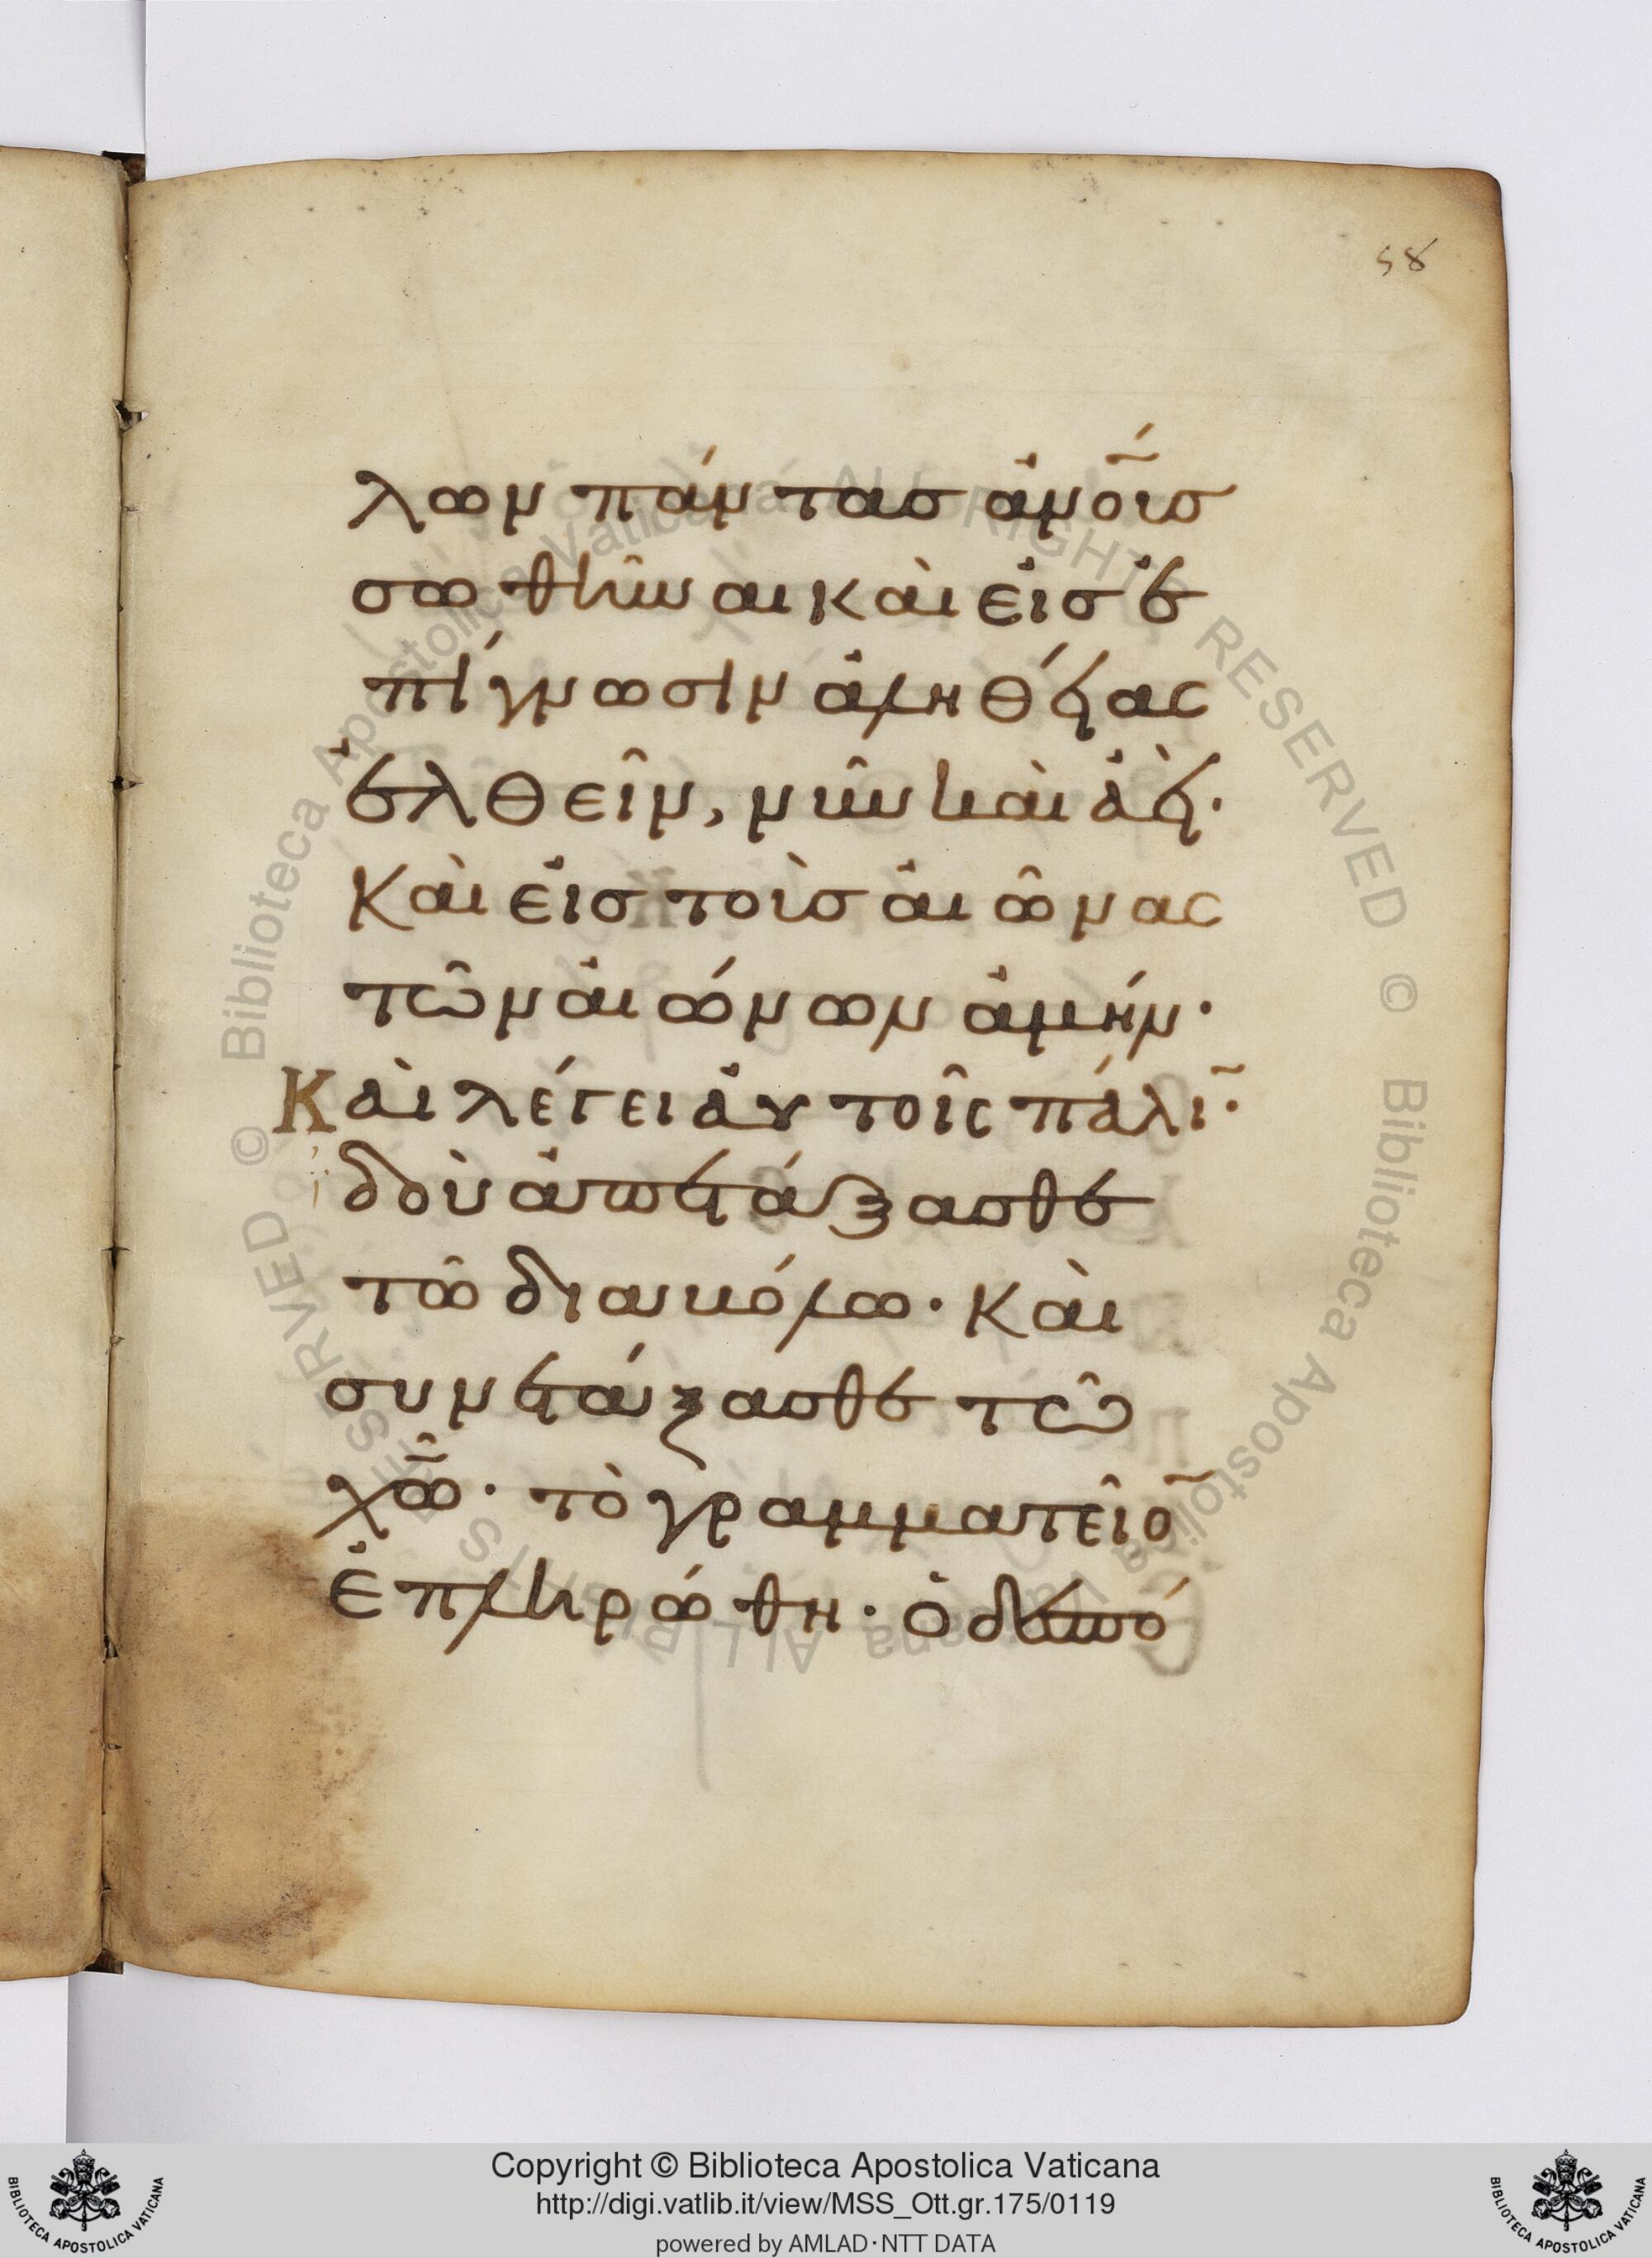 58
λων πάντας ἀν̅ο̅ις
σωθῆναι καὶ εἰς ἐ
πίγνωσιν ἀληθείας
ἐλθεῖν, νῦν καὶ ἀεί·
Καὶ εἰς τοὺς αἰῶνας
τῶν αἰώνων ἀμήν·
Καὶ λέγει αὐτοῖς πάλι̅·
ἰδοὺ ἀπετάξασθε
τῶ διαβόλω· Καὶ
συνετάξασθε τῶ
χ̅ω̅· τὸ γραμματεῖο̅
ἐπληρώθη· ὁ δεσπό
© Biblioteca Apostolica Vaticana ALL RIGHTS RESERVED © Biblioteca Apostolica Vaticana ALL RIGHTS RESERVED
Copyright © Biblioteca Apostolica Vaticana
http://digi.vatlib.it/view/MSS_Ott.gr.175/0119
powered by AMLAD·NTT DATA
BIBLIOTECA APOSTOLICA VATICANA
BIBLIOTECA APOSTOLICA VATICANA